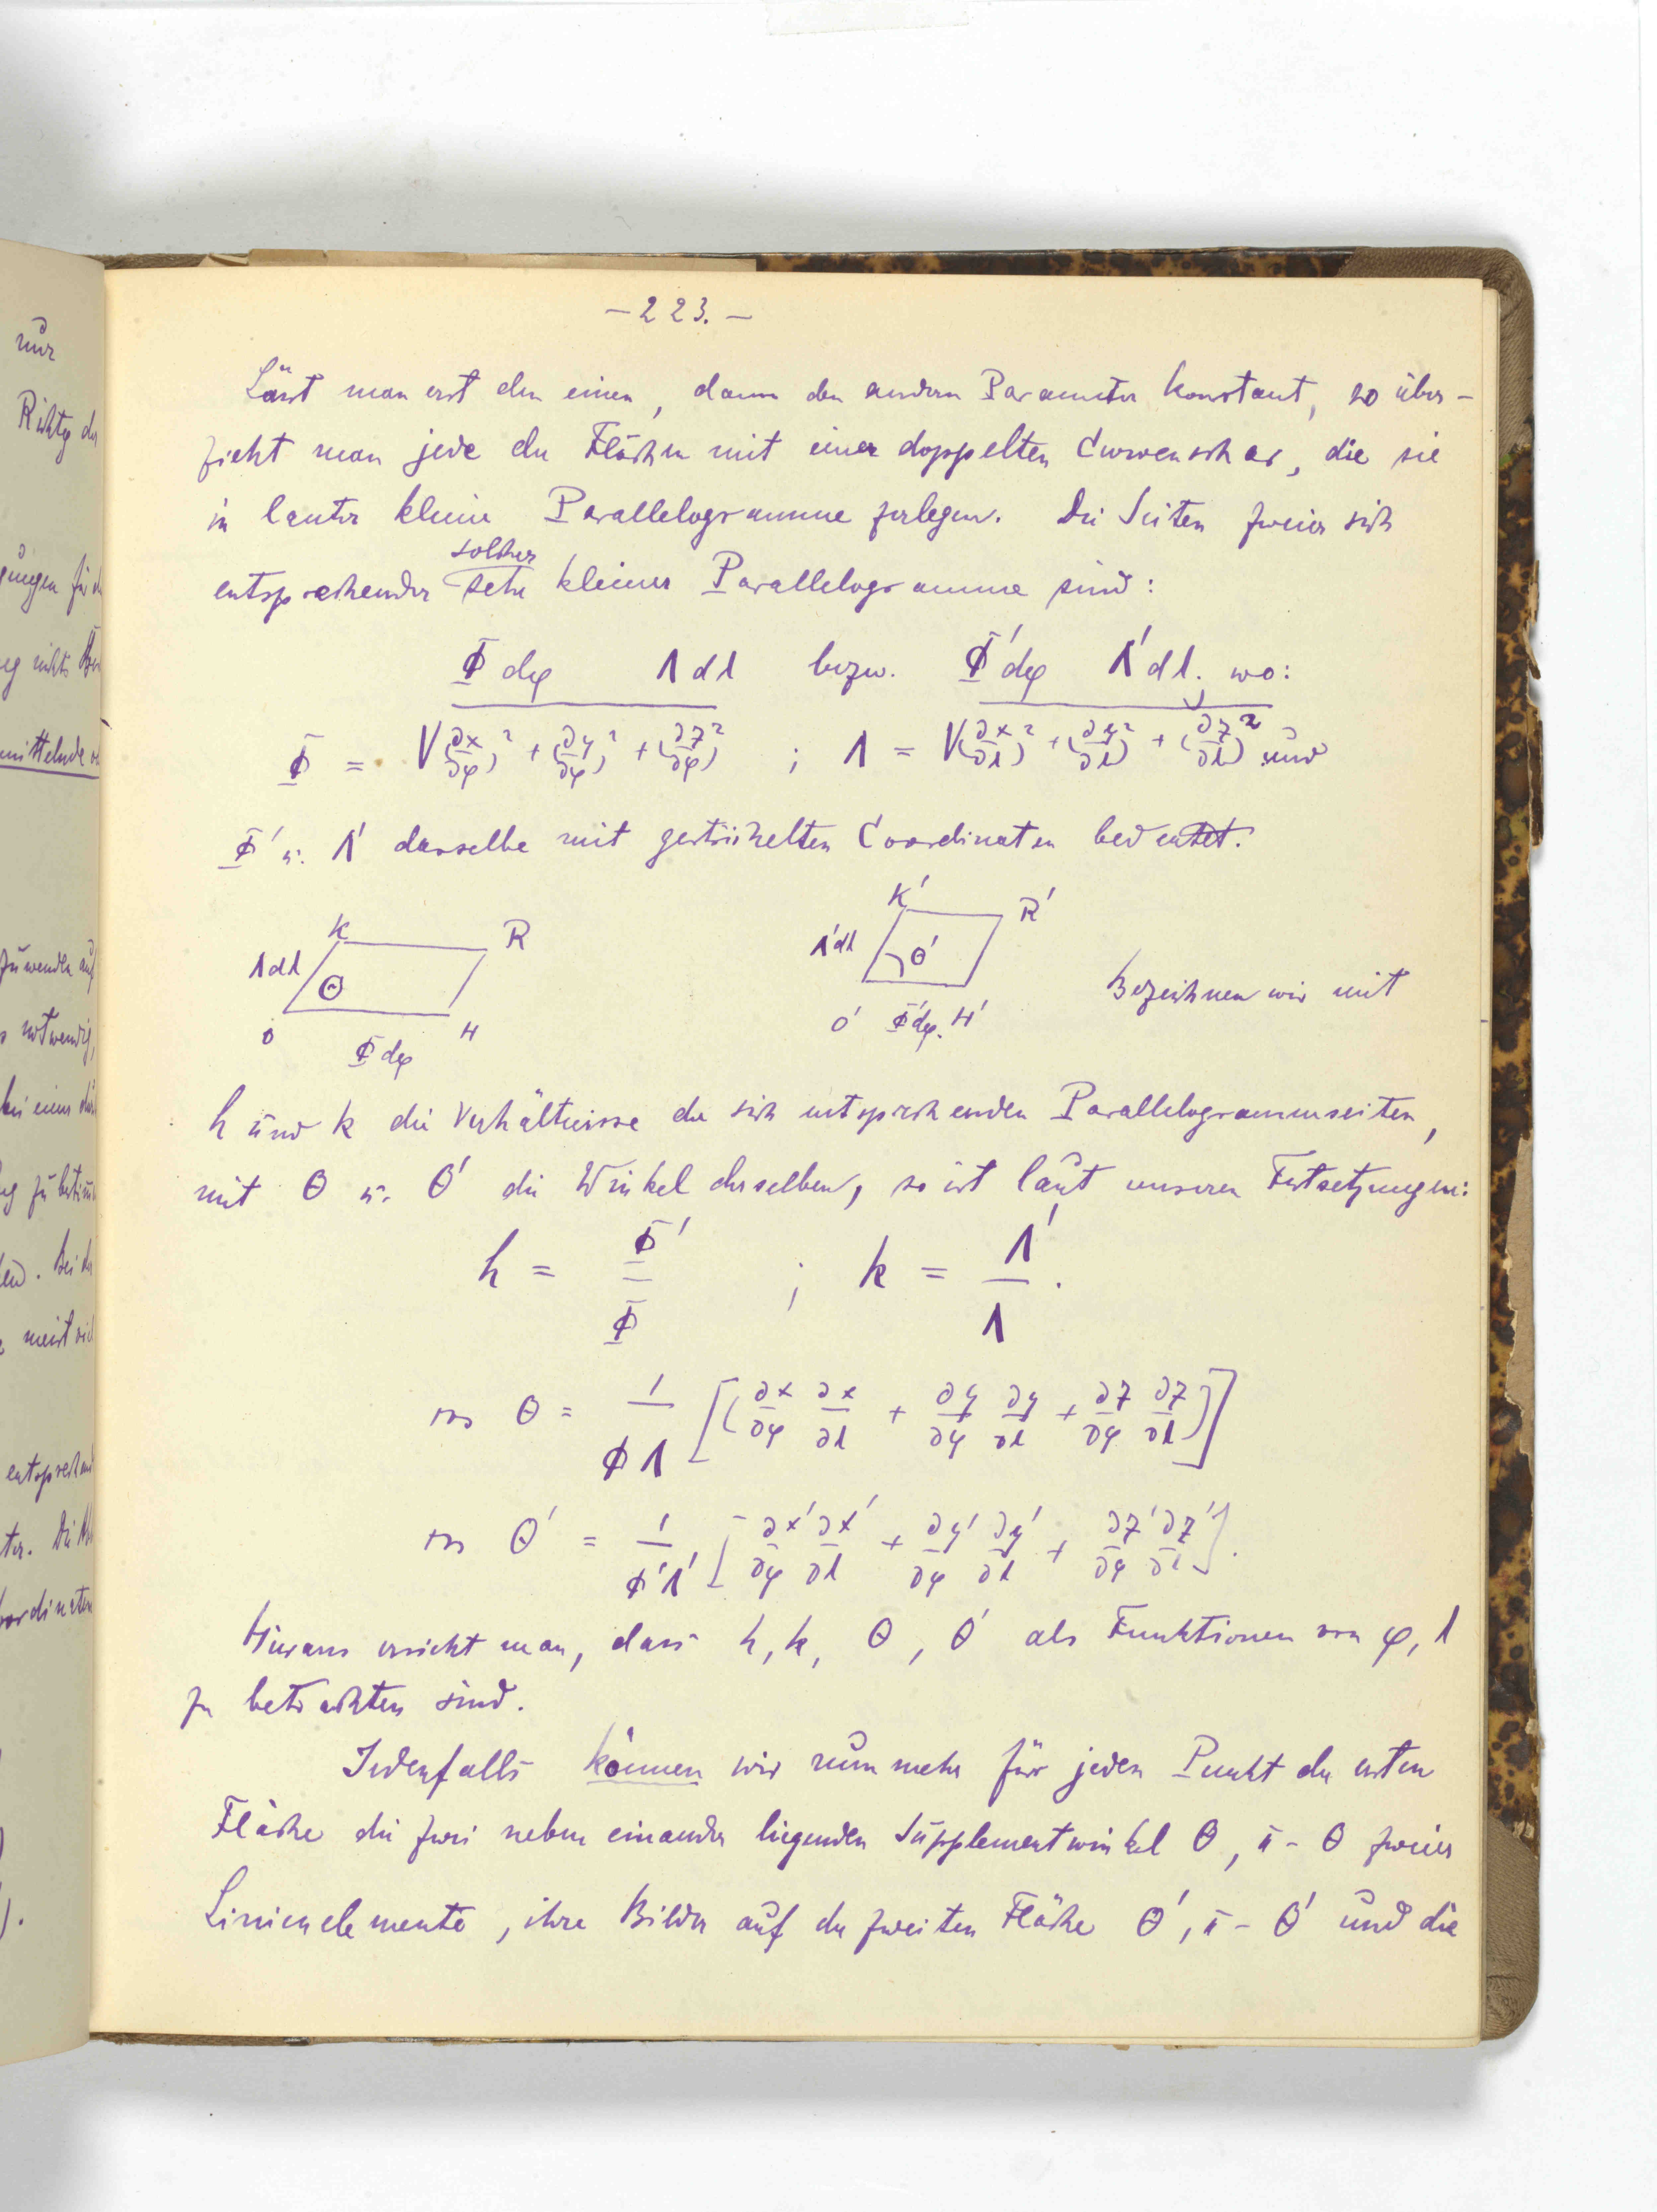 nur
Richtg der
mittelnde
zuwenden auf
notwendig,
bei einer
zu bestimm
. Bei der
meist
entsprechend
ter. Die
oordinaten
).
– 223. –
Lässt man erst den einen, dann den andern Parameter konstant, so über-
zieht man jede der Flächen mit einer doppelten Curvenschar, die sie
in lauter kleine Parallelogramme zerlegen. Die Seiten zweier sich
solcher
entsprechender sehr kleiner Parallelogramme sind:
Φ dφ Λ dλ bezw. Φ′dφ Λ′dλ. wo:
Φ = √(∂x/∂φ)² + (∂y/∂φ)² + (∂z/∂φ)² ; Λ = √(∂x/∂λ)² + (∂y/∂λ)² + (∂z/∂λ)² und
Φ′ u. Λ′ dasselbe mit gestrichelten Coordinaten bedeutet.
K R
Λdλ Θ
O H
Φ dφ
K′ R′
Λ′dλ Θ′
O′ Φ′dφ. H′
Bezeichnen wir mit
h und k die Verhältnisse der sich entsprechenden Parallelogrammseiten,
mit Θ u. Θ′ die Winkel derselben, so ist laut unseren Festsetzungen:
h = Φ′/Φ ; k = Λ′/Λ .
cos Θ = 1/ΦΛ [(∂x/∂φ ∂x/∂λ + ∂y/∂φ ∂y/∂λ + ∂z/∂φ ∂z/∂λ)]
cos Θ′ = 1/Φ′Λ′ [∂x′/∂φ ∂x′/∂λ + ∂y′/∂φ ∂y′/∂λ + ∂z′/∂φ ∂z′/∂λ].
Hieraus ersieht man, dass h, k, Θ, Θ′ als Funktionen von φ, λ
zu betrachten sind.
Jedenfalls können wir nun mehr für jeden Punkt der ersten
Fläche die zwei neben einander liegenden Supplementwinkel Θ, π - Θ zweier
Linienelemente, ihre Bilder auf der zweiten Fläche Θ′, π - Θ′ und die